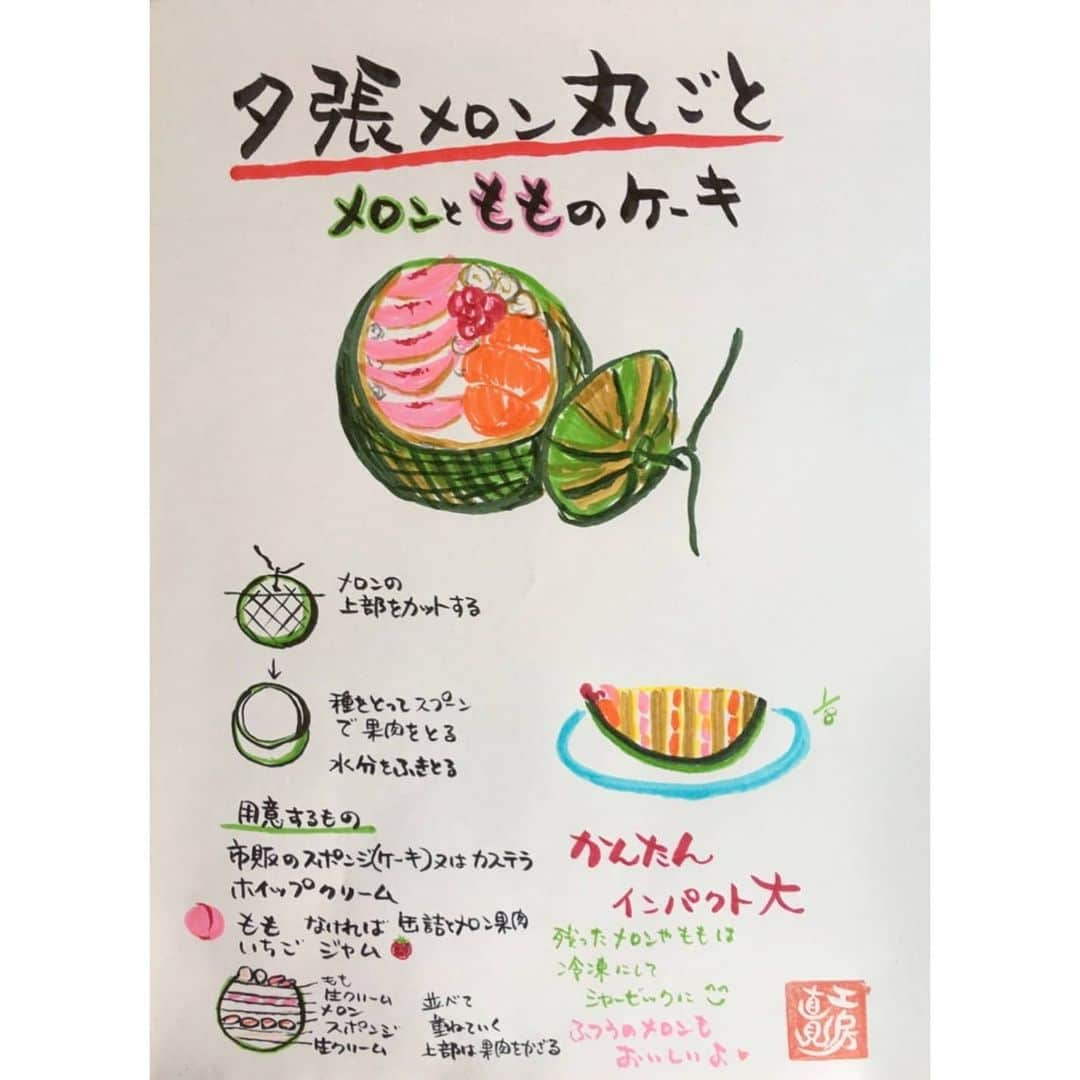 夕張メロン丸ごと
メロンともものケーキ
メロンの
上部をカットする
種をとってスプーン
で果肉をとる
水分をふきとる
1/8
用意するもの
市販のスポンジ(ケーキ)又はカステラ
ホイップクリーム
もも なければ缶詰とメロン果肉
いちごジャム
もも
生クリーム
メロン
スポンジ
生クリーム
並べて
重ねていく
上部は果肉をかざる
かんたん
インパクト大
残ったメロンやももは
冷凍にして
シャーベックに
ふつうのメロンも
おいしいよ♥
工房